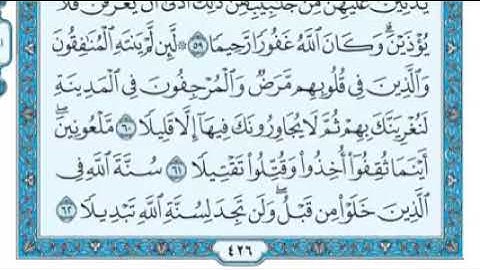 يُدْنِينَ عَلَيْهِنَّ مِن جَلَٰبِيبِهِنَّ ذَٰلِكَ أَدْنَىٰٓ أَن يُعْرَفْنَ فَلَا
يُؤْذَيْنَ ۗ وَكَانَ ٱللَّهُ غَفُورًا رَّحِيمًا ٥٩ ۞ لَّئِن لَّمْ يَنتَهِ ٱلْمُنَٰفِقُونَ
وَٱلَّذِينَ فِى قُلُوبِهِم مَّرَضٌ وَٱلْمُرْجِفُونَ فِى ٱلْمَدِينَةِ
لَنُغْرِيَنَّكَ بِهِمْ ثُمَّ لَا يُجَاوِرُونَكَ فِيهَآ إِلَّا قَلِيلًا ٦٠ مَّلْعُونِينَ ۖ
أَيْنَمَا ثُقِفُوٓا۟ أُخِذُوا۟ وَقُتِّلُوا۟ تَقْتِيلًا ٦١ سُنَّةَ ٱللَّهِ فِى
ٱلَّذِينَ خَلَوْا۟ مِن قَبْلُ ۖ وَلَن تَجِدَ لِسُنَّةِ ٱللَّهِ تَبْدِيلًا ٦٢
٤٢٦